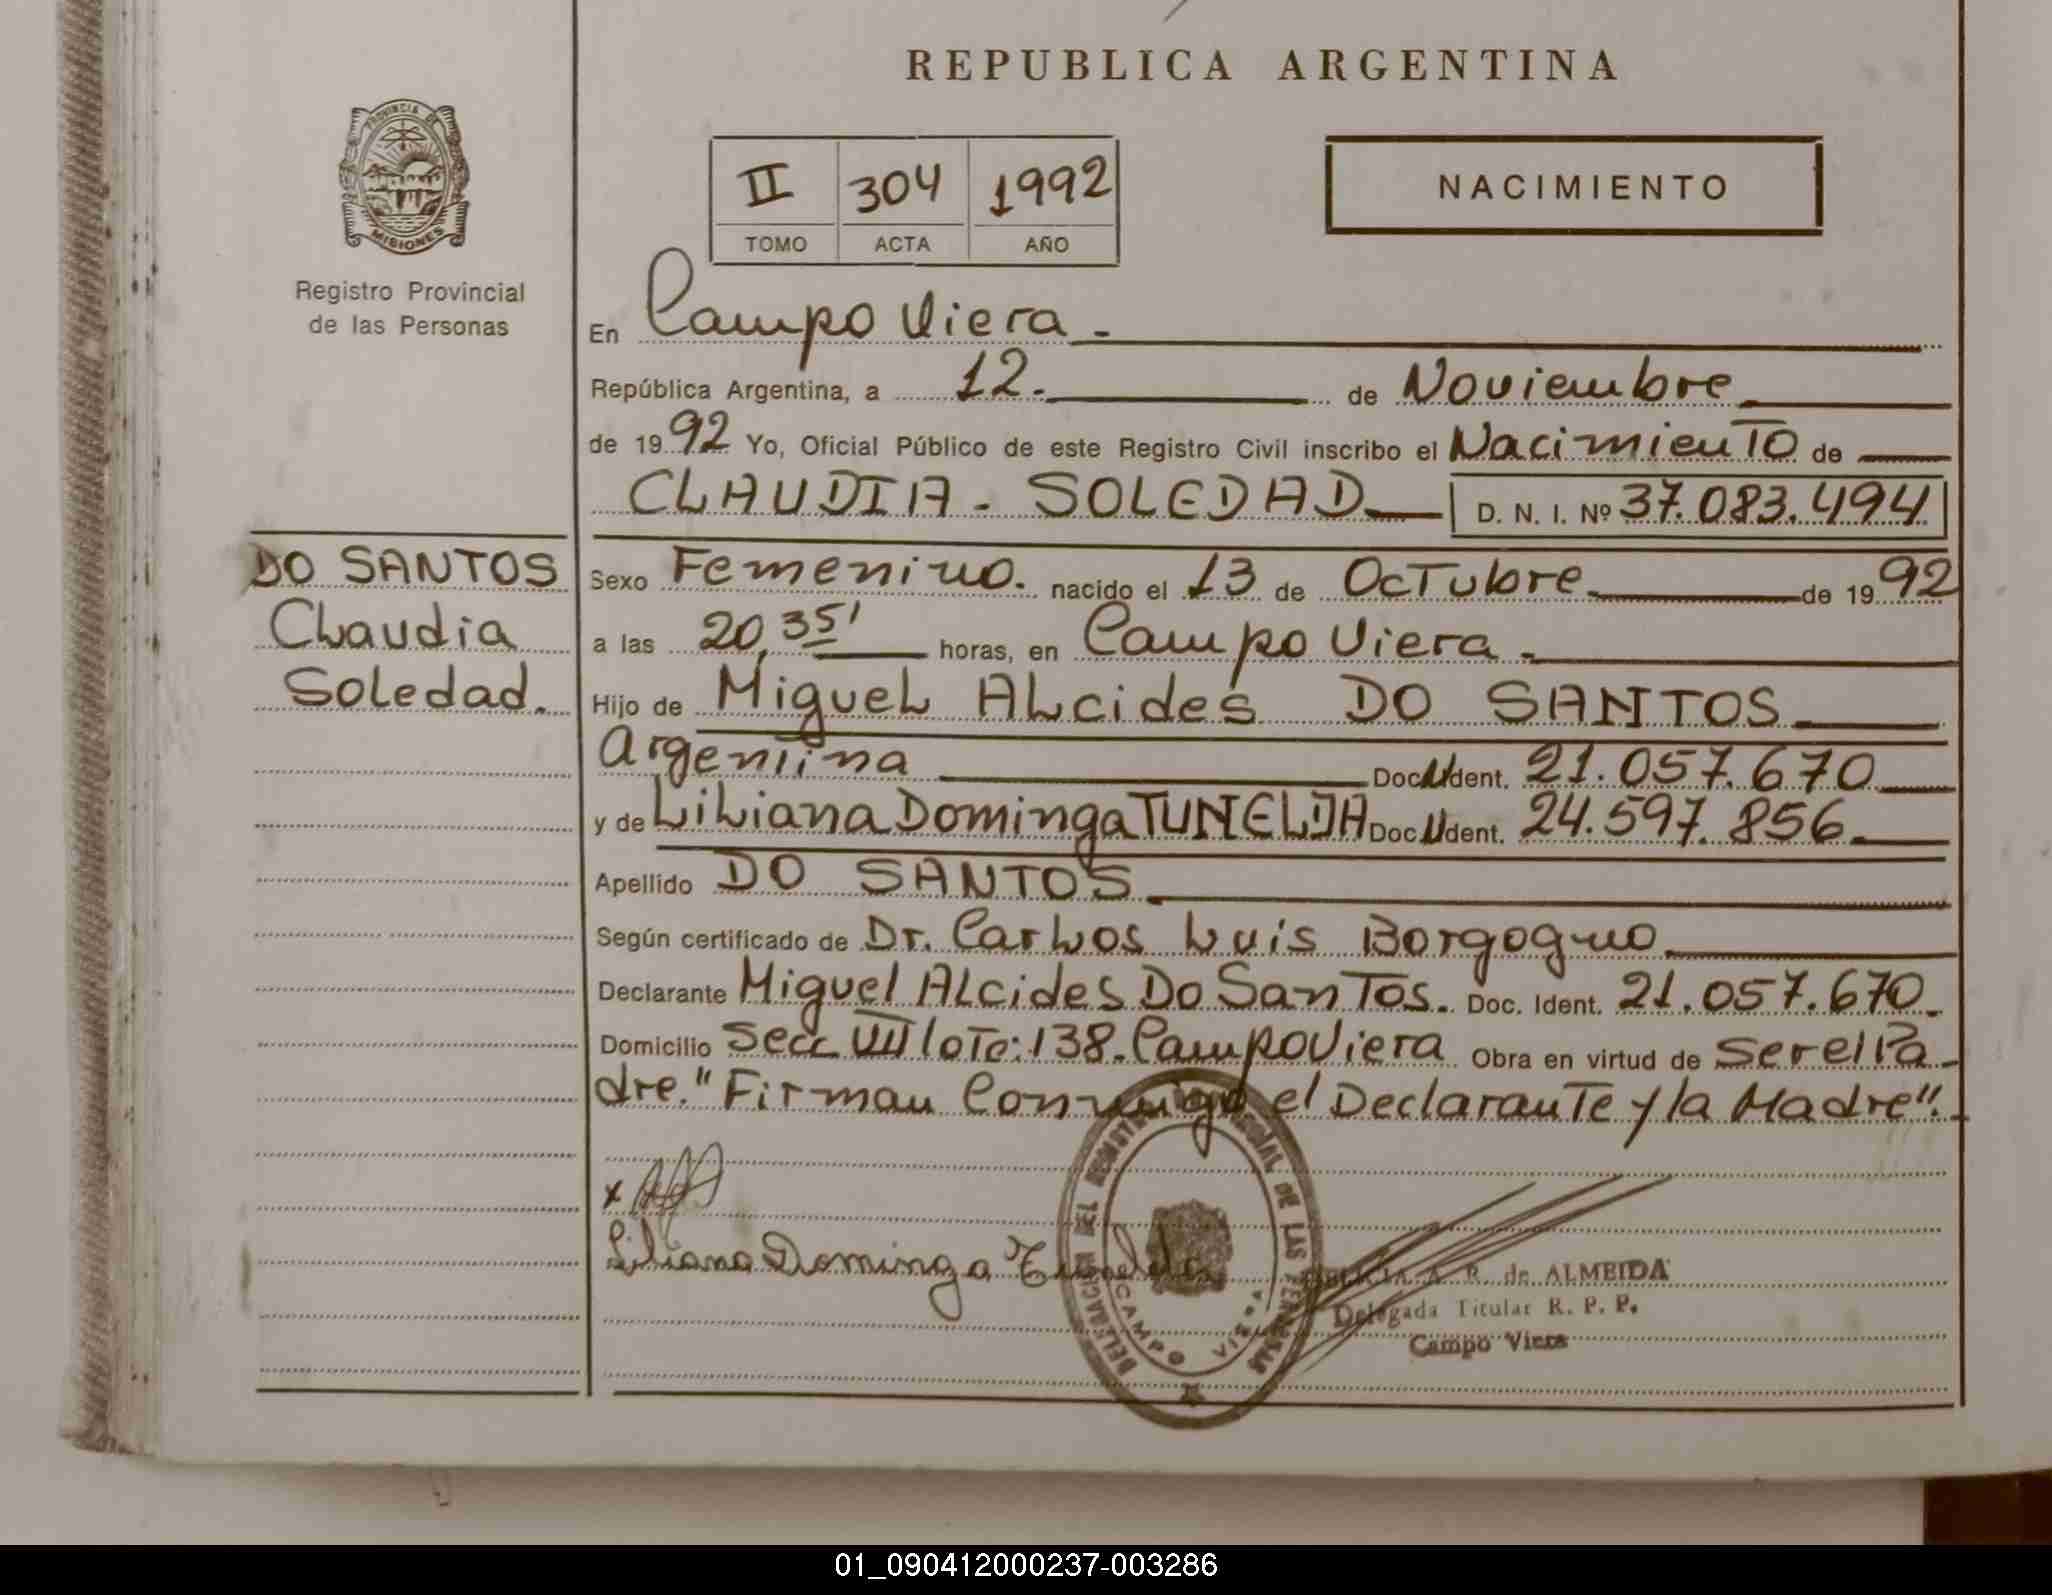 REPUBLICA ARGENTINA
PROVINCIA DE
MISIONES
Registro Provincial
de las Personas
II 304 1992
TOMO ACTA AÑO
NACIMIENTO
En Campo Viera.-
República Argentina, a 12.- de Noviembre
de 1992 Yo, Oficial Público de este Registro Civil inscribo el Nacimiento de
CLAUDIA - SOLEDAD D. N. I. Nº 37.083.494
DO SANTOS
Claudia
Soledad.
Sexo Femenino. nacido el 13 de Octubre de 1992
a las 20,35' horas, en Campo Viera.
Hijo de Miguel Alcides DO SANTOS
Argentina Doc. Ident. 21.057.670
y de Liliana Dominga TUNELDA Doc. Ident. 24.597.856.
Apellido DO SANTOS
Según certificado de Dr. Carlos Luis Borgogno
Declarante Miguel Alcides Do Santos. Doc. Ident. 21.057.670.
Domicilio Secc VIII lote: 138. Campo Viera Obra en virtud de ser el Pa-
dre. "Firman Conmigo el Declarante y la Madre".
x
Liliana Dominga
DELEGACION DEL REGISTRO PROVINCIAL DE LAS PERSONAS
CAMPO VIERA
A. R. de ALMEIDA
Delegada Titular R. P. P.
Campo Viera
01_090412000237-003286